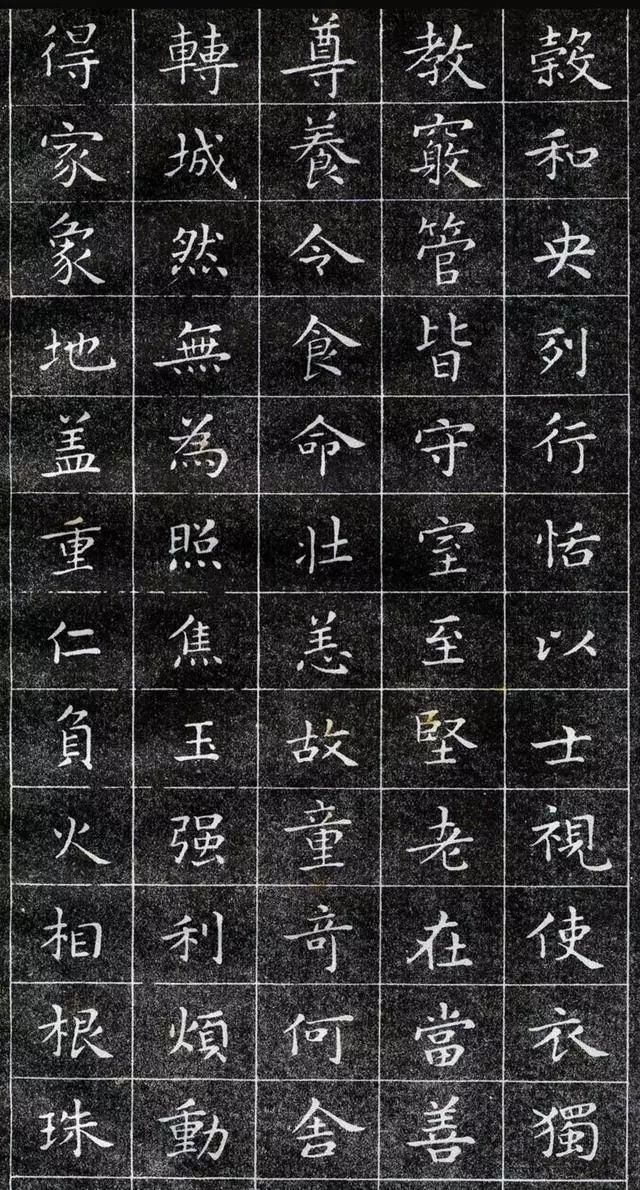 榖和央列行恬以士視使衣獨
教窮管皆守室至堅老在當善
尊養令食命壯恙故童奇何舍
轉城然無為照焦玉强利煩動
得家象地盖重仁負火相根珠